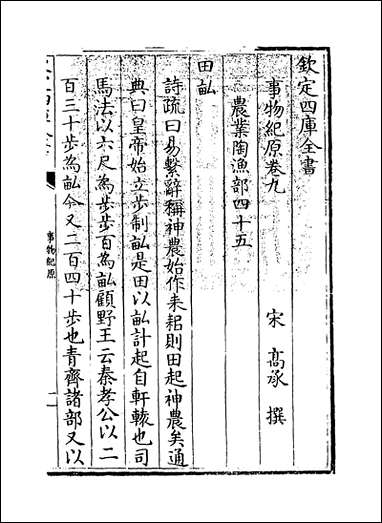 欽定四庫全書
事物紀原卷九
宋 高承 撰
農業陶漁部四十五
田畝
詩疏曰易繫辭稱神農始作耒耜則田起神農矣通
典曰皇帝始立步制畝是田以畝計起自軒轅也司
馬法以六尺為步步百為畝顧野王云秦孝公以二
百三十步為畝今又二百四十步也青齊諸部又以
事物紀原